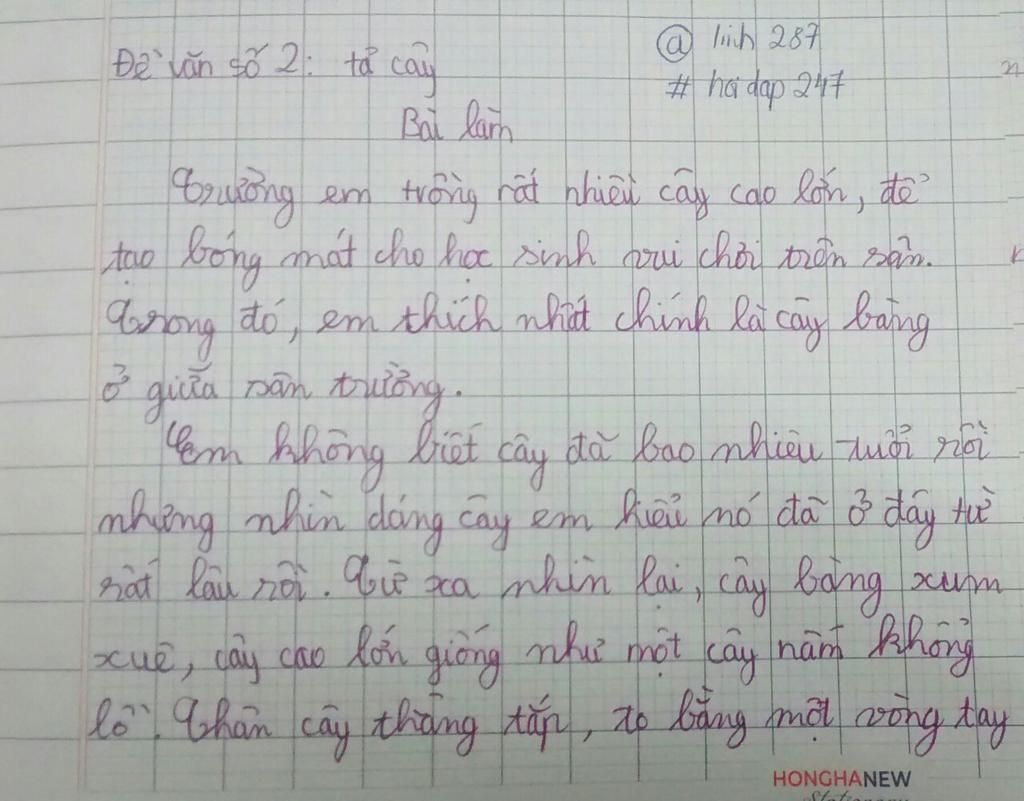 @ linh 287
Đề văn số 2: tả cây
# hoidap247
Bài làm
Trường em trồng rất nhiều cây cao lớn, để
tạo bóng mát cho học sinh vui chơi trên sân.
Trong đó, em thích nhất chính là cây bàng
ở giữa sân trường.
Em không biết cây đã bao nhiêu tuổi rồi
nhưng nhìn dáng cây em hiểu nó đã ở đây từ
rất lâu rồi. Từ xa nhìn lại, cây bàng xum
xuê, cây cao lớn giống như một cây nấm khổng
lồ. Thân cây thẳng tắp, to bằng một vòng tay
HONGHANEW
Stationery